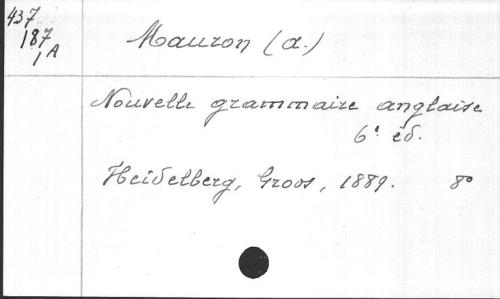 437
187
1A
Mauron (A.)
Nouvelle grammaire anglaise
6e éd.
Heidelberg, Groos, 1889. 8o